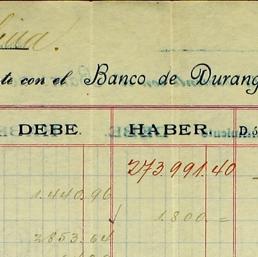 te con el Banco de Durang
DEBE. HABER. D.s
273.991.40
1.440.96
1.800=
2853.64